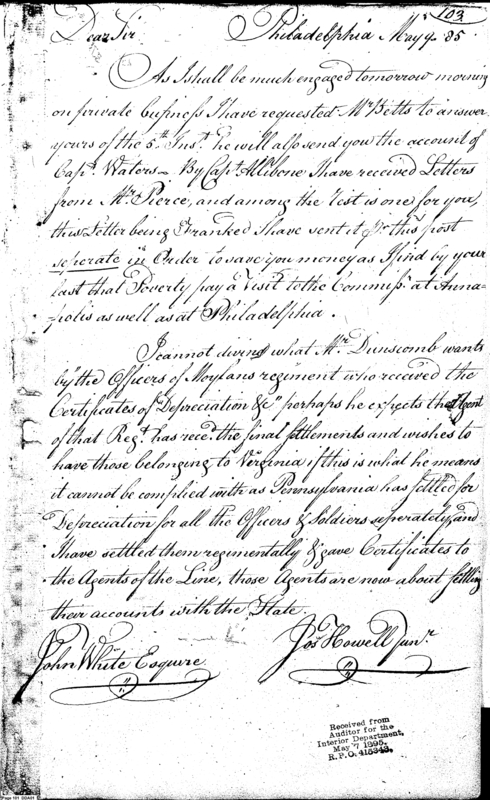 103
Dear Sir Philadelphia May 9 '85
As I shall be much engaged tomorrow morning
on private business I have requested Mr Betts to answer
yours of the 5th Inst. he will also send you the account of
Capt. Waters — By Capt. Allibone I have received Letters
from Mr. Pierce, and among the rest is one for you,
this Letter being Franked I have sent it pr. this post
seperate in Order to save you money as I find by your
last that Poverty pay a Visit to the Commissr. at Anna-
polis as well as at Philadelphia.
I cannot divine what Mr. Dunscomb wants
by "the Officers of Moylans regiment who received the
Certificates of Depreciation &c" perhaps he expects the Agent
of that Regt. has recd. the final settlements and wishes to
have those belonging to Virginia if this is what he means
it cannot be complied with as Pennsylvania has settled for
Depreciation for all the Officers & Soldiers seperately, and
I have settled them regimentally & gave Certificates to
the Agents of the Line, those Agents are now about settling
their accounts with the State.
John White Esquire Jos Howell Junr
Received from
Auditor for the
Interior Department,
May 7 1895,
R.P.O. 415343.